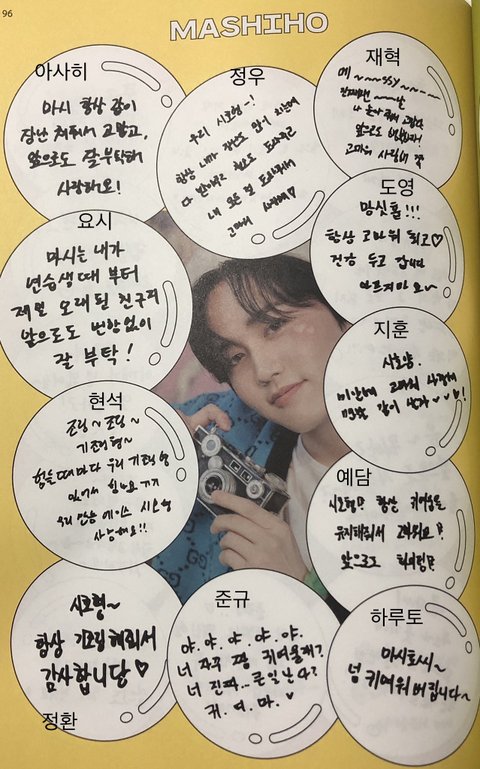 96
MASHIHO
아사히
마시 항상 같이
장난 쳐줘서 고맙고,
앞으로도 잘부탁해
사랑해요!
정우
우리 시호형~!
항상 내가 장난도 많이 치는데
다 받아주고
내 모든 걸
고마워 사랑해♡
재혁
나 혼나 줘서 고맙다
앞으로도
고마워 사랑해
도영
맘싯홀!!!
항상 고마워 최고♡
건강 두고 갑니다
아프지마요~
요시
마시는 내가
연습생 때 부터
제일 오래된 친구지
앞으로도 변함없이
잘 부탁!
지훈
시호얌.
미안해 고마워 사랑해
평생 같이 살자♡♡!
현석
조림~조림~
기조림형~
힘들때마다 우리 기조림형
있어서 힘나요
우리 만능 에이스 시호형
사랑해요!!
예담
시호형! 항상 귀여움을
유지해줘서 고마워요!
앞으로도
시호형~
항상 기모링해줘서
감사합니당♡
정환
준규
야. 야. 야. 야. 야.
너 자꾸 막 귀여울래?
너 진짜.. 큰일난다?
귀. 여. 마.
하루토
마시호시~
넘 귀여워 버립니다~